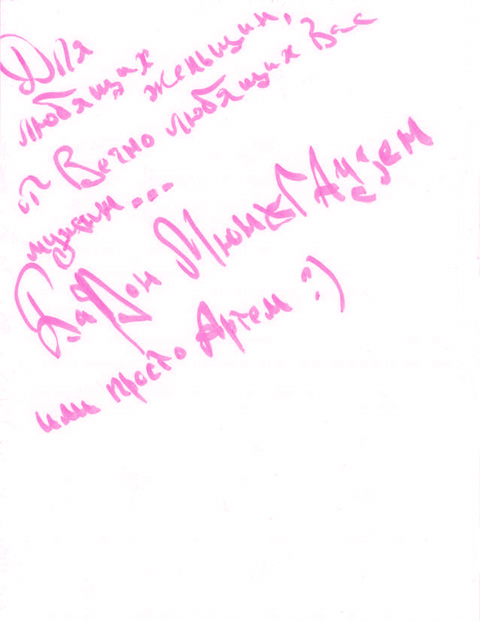 Для
любящих женьщин,
от Вечно любящих Вас
мужчин...
Барон Мюнхгаузем
или просто Артем :)